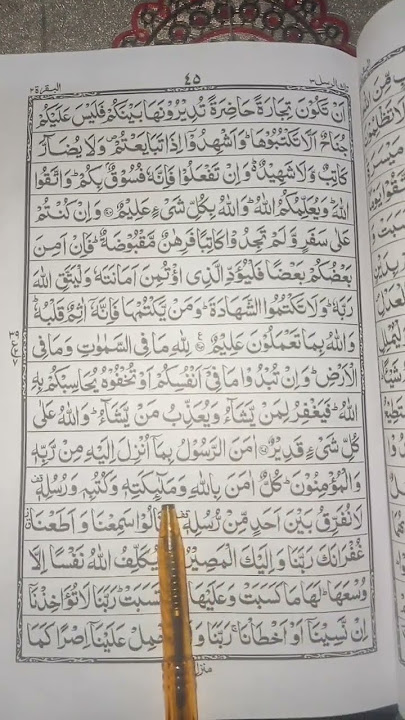 البقرة ٢
٤٥
تلك الرسل ٣
اَنْ تَكُوْنَ تِجَارَةً حَاضِرَةً تُدِيْرُوْنَهَا بَيْنَكُمْ فَلَيْسَ عَلَيْكُمْ
جُنَاحٌ اَلَّا تَكْتُبُوْهَا ؕ وَاَشْهِدُوْۤا اِذَا تَبَايَعْتُمْ ۪ وَلَا يُضَآرَّ
كَاتِبٌ وَّلَا شَهِيْدٌ ؕ وَاِنْ تَفْعَلُوْا فَاِنَّهٗ فُسُوْقٌۢ بِكُمْ ؕ وَاتَّقُوا
اللّٰهَ ؕ وَيُعَلِّمُكُمُ اللّٰهُ ؕ وَاللّٰهُ بِكُلِّ شَيْءٍ عَلِيْمٌ وَاِنْ كُنْتُمْ
عَلٰى سَفَرٍ وَّلَمْ تَجِدُوْا كَاتِبًا فَرِهٰنٌ مَّقْبُوْضَةٌ ؕ فَاِنْ اَمِنَ
بَعْضُكُمْ بَعْضًا فَلْيُؤَدِّ الَّذِي اؤْتُمِنَ اَمَانَتَهٗ وَلْيَتَّقِ اللّٰهَ
رَبَّهٗ ؕ وَلَا تَكْتُمُوا الشَّهَادَةَ ؕ وَمَنْ يَّكْتُمْهَا فَاِنَّهٗۤ اٰثِمٌ قَلْبُهٗ ؕ
وَاللّٰهُ بِمَا تَعْمَلُوْنَ عَلِيْمٌ لِلّٰهِ مَا فِي السَّمٰوٰتِ وَمَا فِي
الْاَرْضِ ؕ وَاِنْ تُبْدُوْا مَا فِيْۤ اَنْفُسِكُمْ اَوْ تُخْفُوْهُ يُحَاسِبْكُمْ بِهِ
اللّٰهُ ؕ فَيَغْفِرُ لِمَنْ يَّشَآءُ وَيُعَذِّبُ مَنْ يَّشَآءُ ؕ وَاللّٰهُ عَلٰى
كُلِّ شَيْءٍ قَدِيْرٌ اٰمَنَ الرَّسُوْلُ بِمَاۤ اُنْزِلَ اِلَيْهِ مِنْ رَّبِّهٖ
وَالْمُؤْمِنُوْنَ ؕ كُلٌّ اٰمَنَ بِاللّٰهِ وَمَلٰٓئِكَتِهٖ وَكُتُبِهٖ وَرُسُلِهٖ
لَا نُفَرِّقُ بَيْنَ اَحَدٍ مِّنْ رُّسُلِهٖ سَمِعْنَا وَاَطَعْنَا
غُفْرَانَكَ رَبَّنَا وَاِلَيْكَ الْمَصِيْرُ اللّٰهُ نَفْسًا اِلَّا
وُسْعَهَا ؕ لَهَا مَا كَسَبَتْ وَعَلَيْهَا رَبَّنَا لَا تُؤَاخِذْنَاۤ
اِنْ نَّسِيْنَاۤ اَوْ اَخْطَاْنَا ۚ رَبَّنَا عَلَيْنَاۤ اِصْرًا كَمَا
منزل